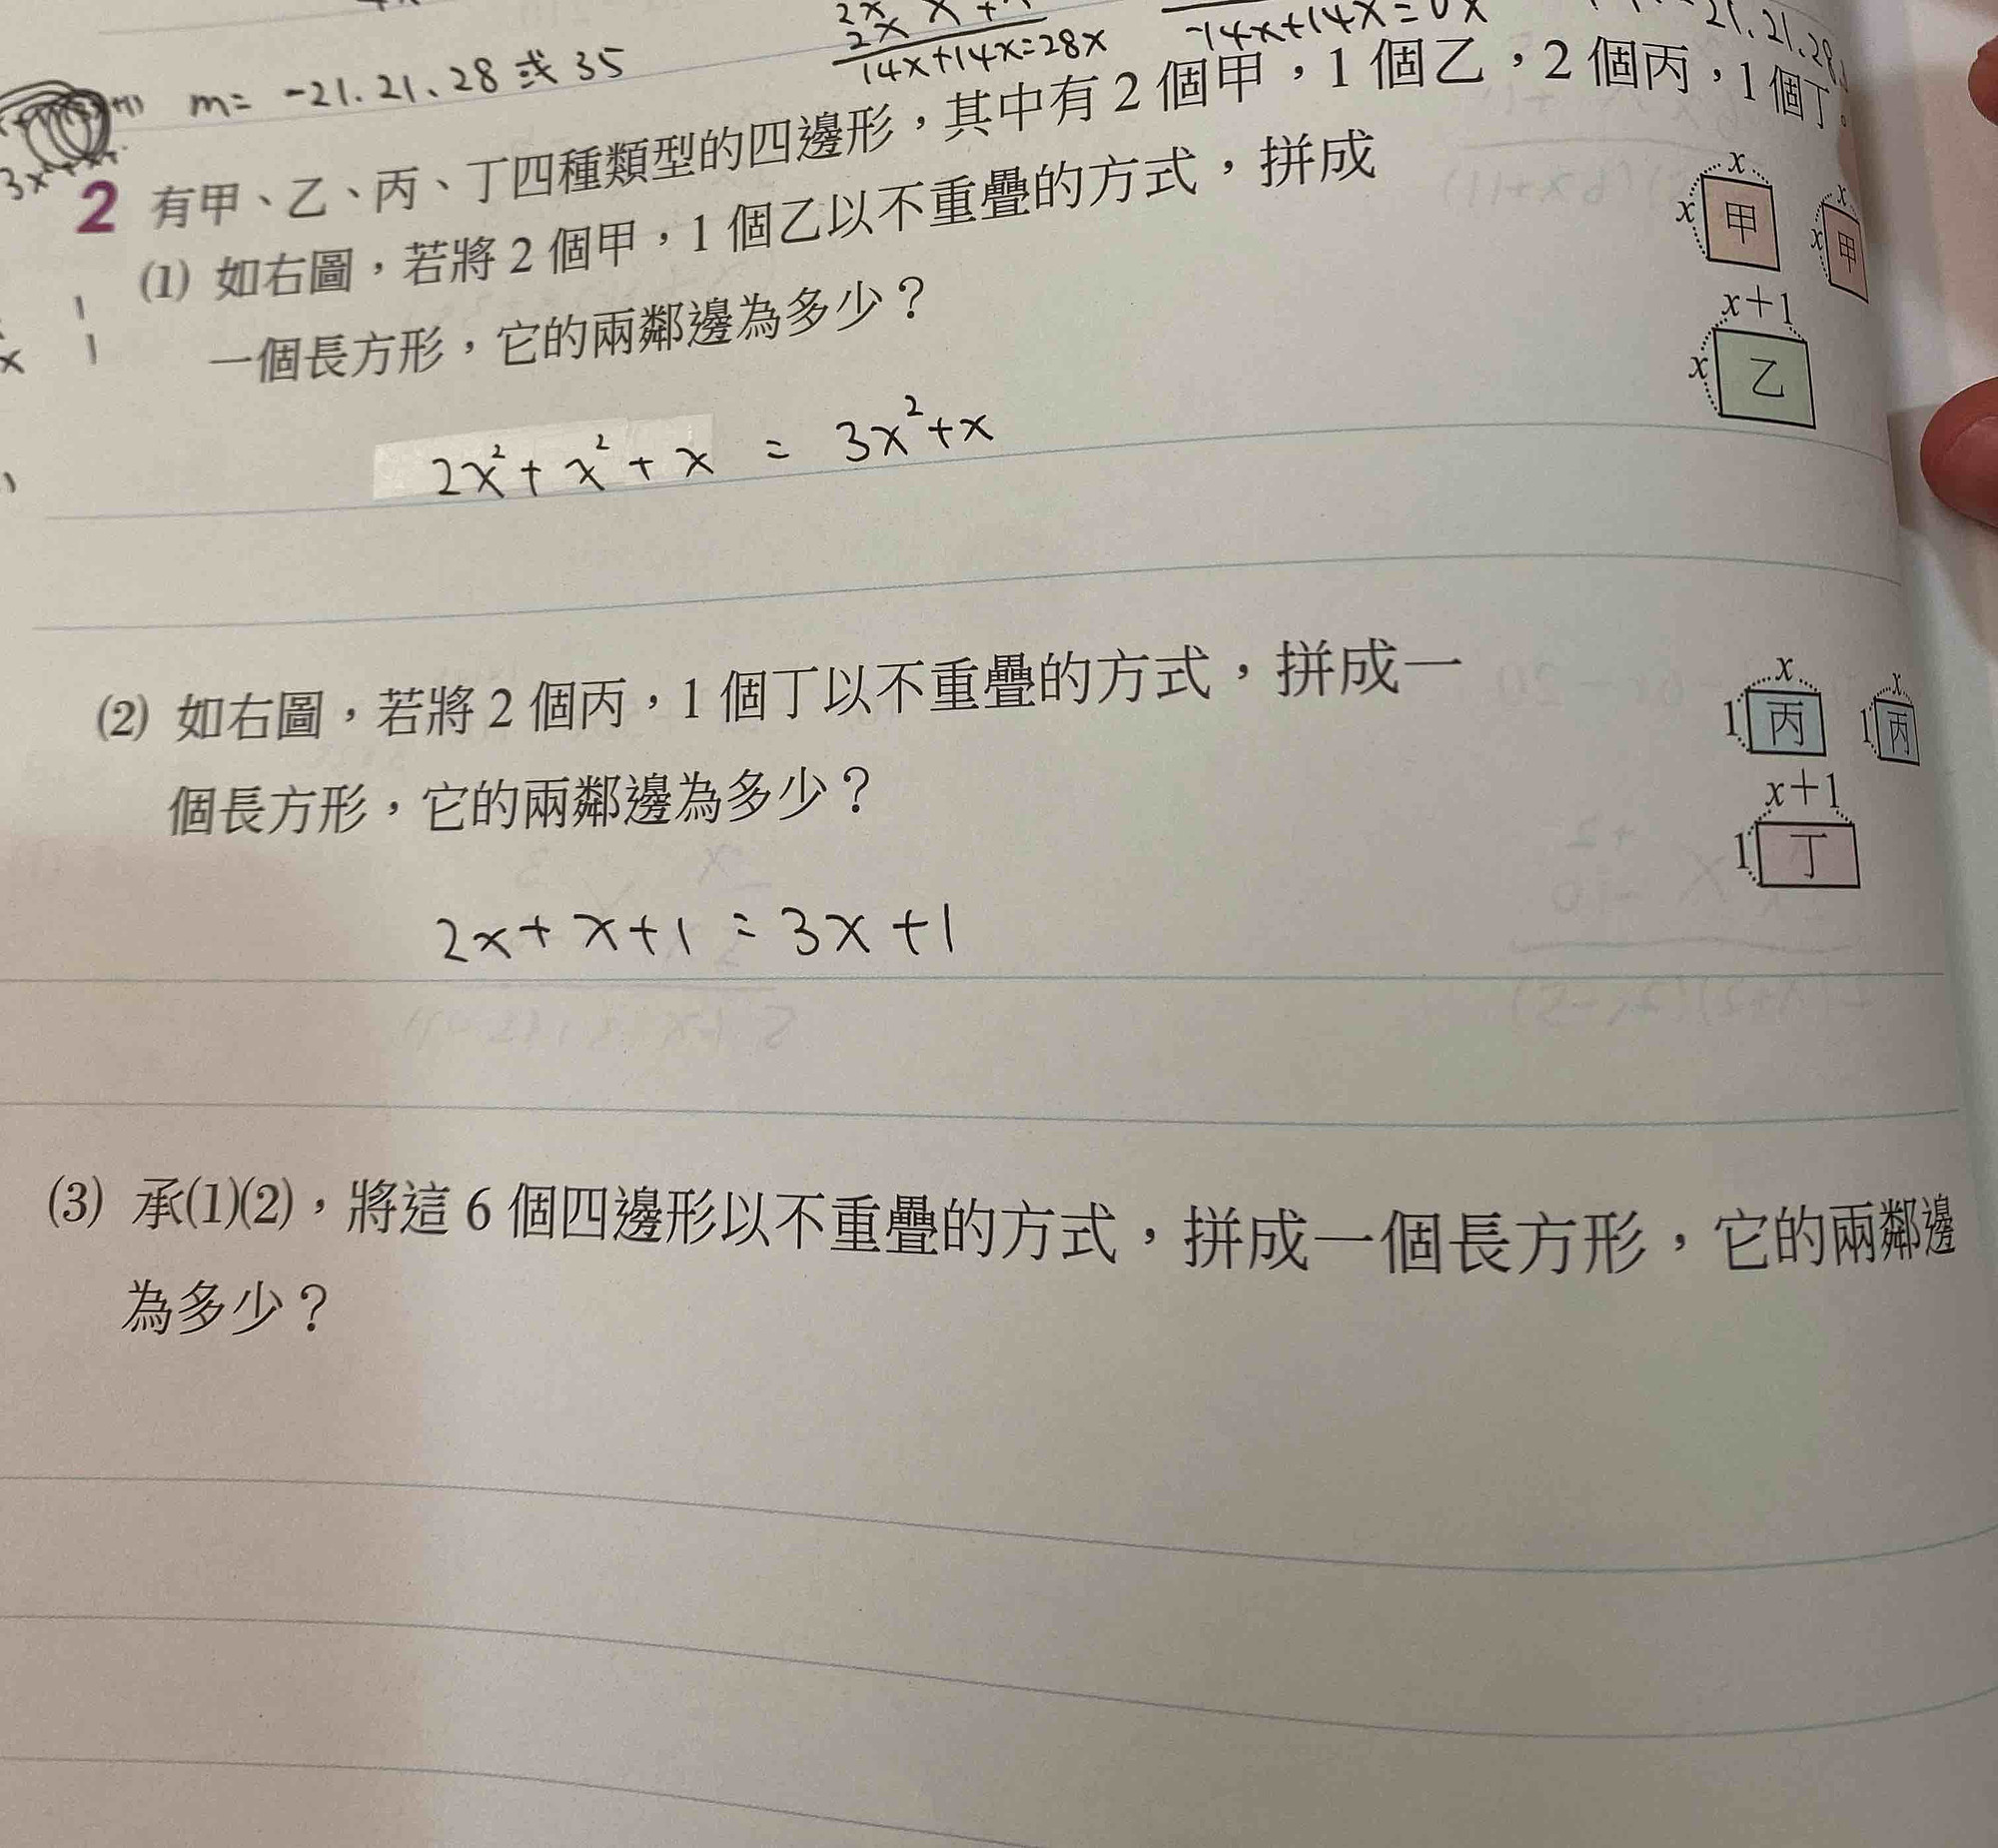 m= -21.21、28或35
14x+14x=28x
-14x+14x=0x
-21.21.28
2 有甲、乙、丙、丁四種類型的四邊形，其中有2個甲，1個乙，2個丙，1個丁。
(1) 如右圖，若將2個甲，1個乙以不重疊的方式，拼成
一個長方形，它的兩鄰邊為多少？
x
x 甲
x
x 甲
x+1
x 乙
2x²+x²+x = 3x²+x
(2) 如右圖，若將2個丙，1個丁以不重疊的方式，拼成一
個長方形，它的兩鄰邊為多少？
x
1 丙
x
1 丙
x+1
1 丁
2x+x+1=3x+1
(3) 承(1)(2)，將這6個四邊形以不重疊的方式，拼成一個長方形，它的兩鄰邊
為多少？